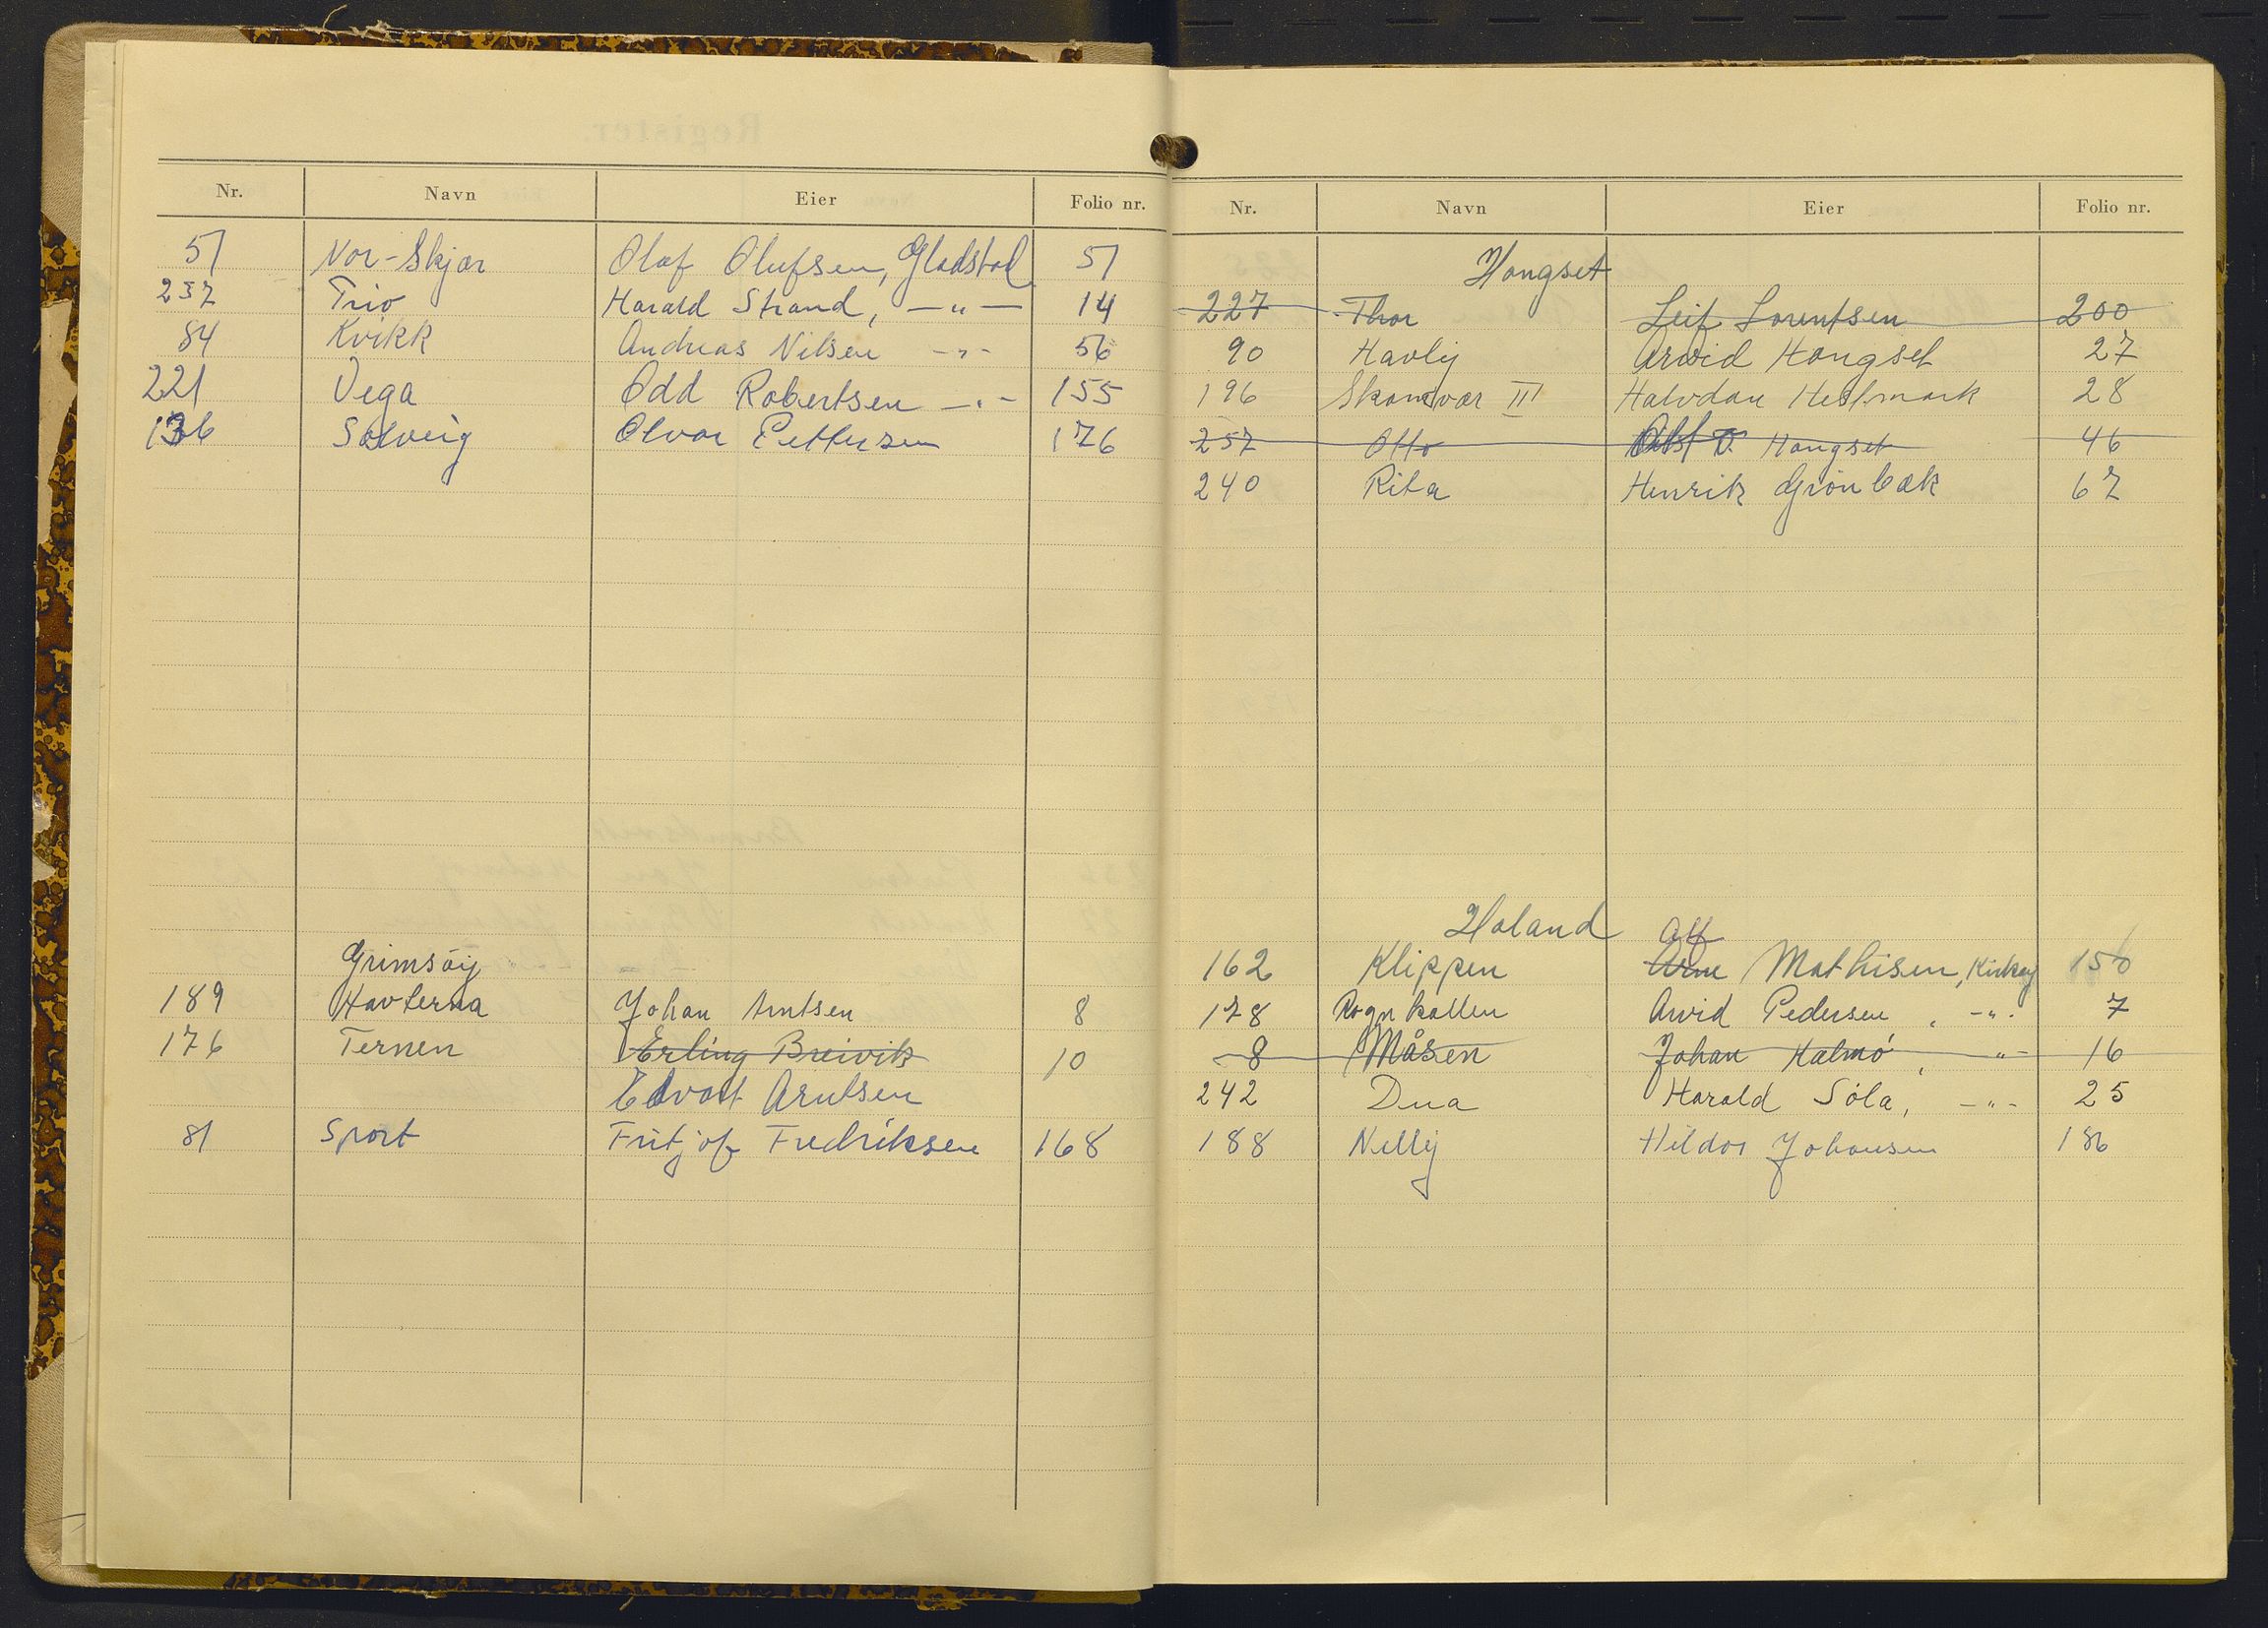 Nr. Navn Eier Folio nr.
51 Nor-Skjær Olaf Olufsen, Gladstad 51
237 Trio Harald Strand, —"— 14
84 Kvikk Andreas Nilsen -"- 56
221 Vega Odd Robertsen —"— 155
136 Solveig Olvar Pettersen 176
Grimsöy
189 Havterna Johan Arntsen 8
176 Ternen Erling Breivik 10
Edvart Arntsen
81 Sport Fritjof Fredriksen 168
Nr. Navn Eier Folio nr.
Hongset
227 Thor Leif Lorentsen 200
90 Havly Arvid Hongset 27
196 Skomvær III Halvdan Hestmark 28
257 Otto Hongset 46
240 Rita Henrik Grönbæk 67
Holand
Alf
162 Klippen Arne Mathisen, Kirköy 156
178 Rognkallen Arvid Pedersen, -"- 7
8 Måsen Johan Kalmö, "- 16
242 Dua Harald Söla, -"- 25
188 Nelly Hildor Johansen 186